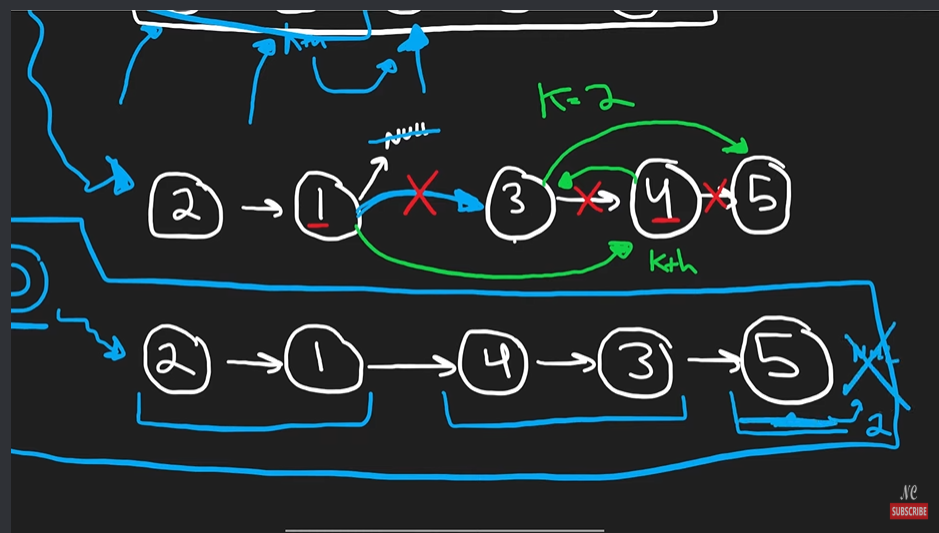 Kth
K=2
NULL
2 1 3 4 5
Kth
2 1 4 3 5
NULL
2
NC
SUBSCRIBE